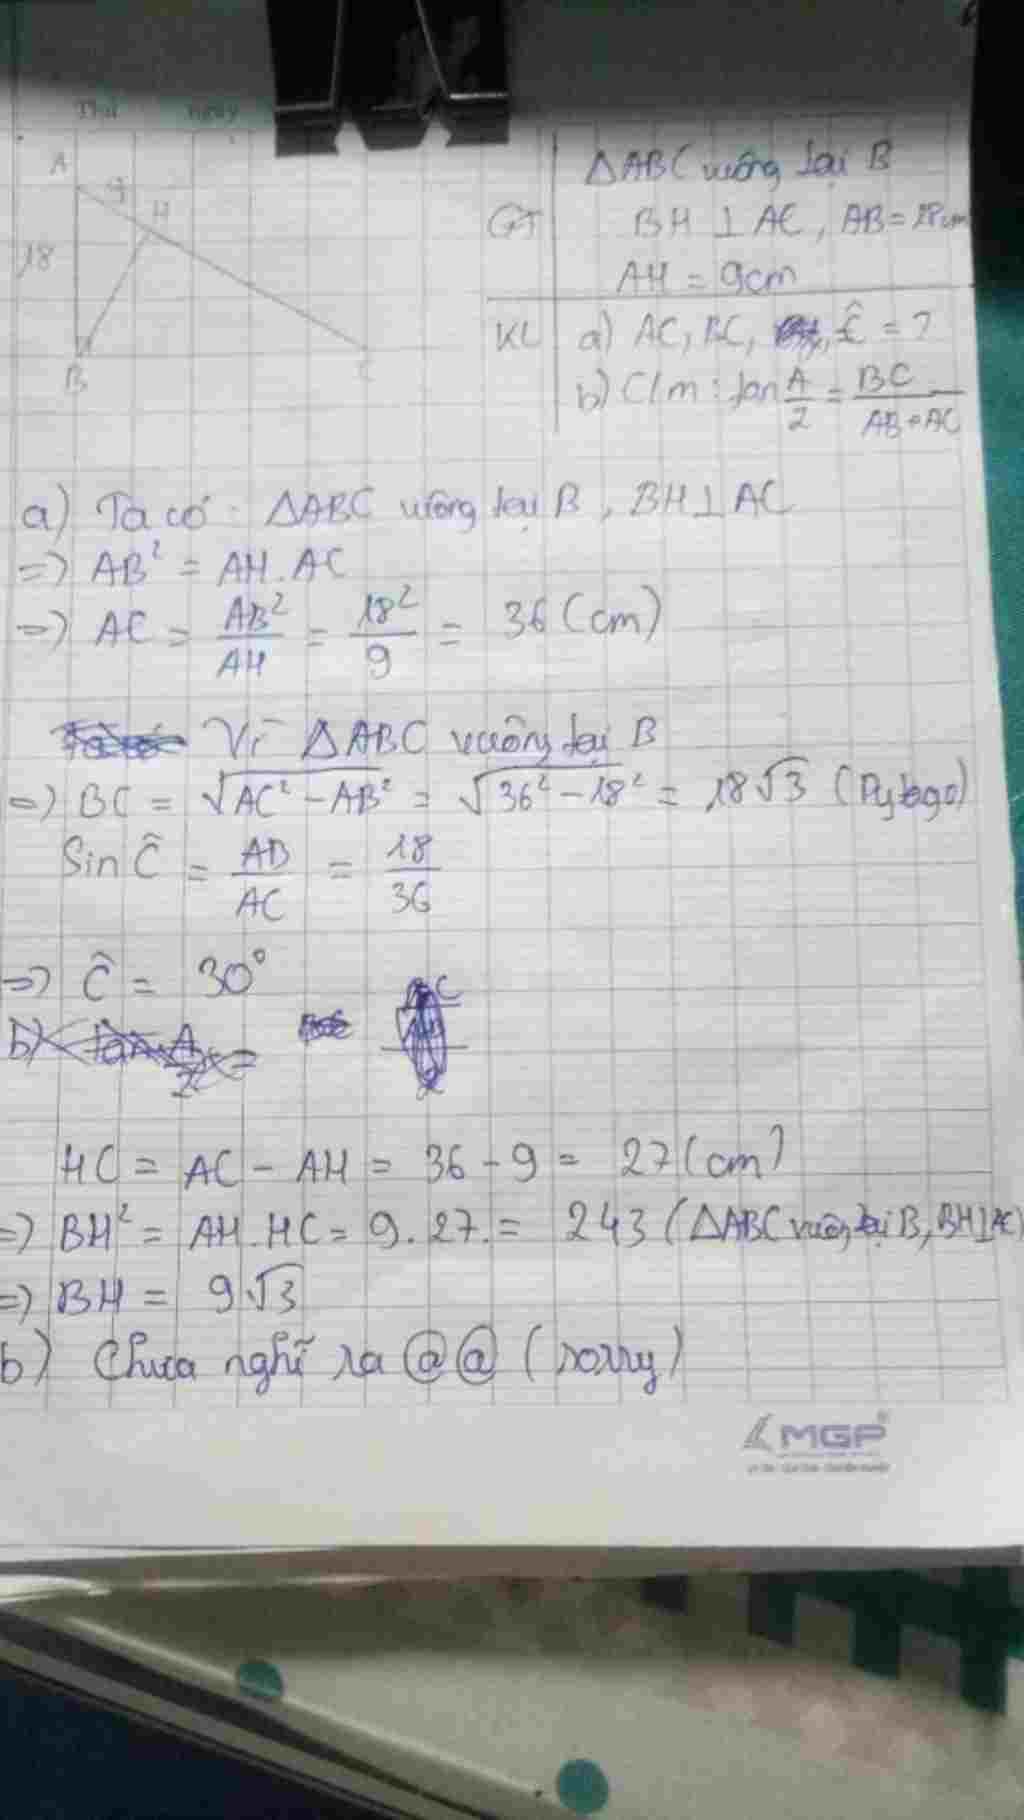 Thứ ngày
A
9
H
18
B
C
ΔABC vuông tại B
GT BH ⊥ AC, AB = 18cm
AH = 9cm
KL a) AC, BC, Ĉ = ?
b) C/m: tan A/2 = BC/(AB+AC)
a) Ta có: ΔABC vuông tại B, BH ⊥ AC
=> AB² = AH.AC
=> AC = AB²/AH = 18²/9 = 36 (cm)
Vì ΔABC vuông tại B
=> BC = √(AC² - AB²) = √(36² - 18²) = 18√3 (Pytago)
Sin Ĉ = AB/AC = 18/36
=> Ĉ = 30°
HC = AC - AH = 36 - 9 = 27 (cm)
=> BH² = AH.HC = 9.27 = 243 (ΔABC vuông tại B, BH⊥AC)
=> BH = 9√3
b) Chưa nghĩ ra @@ (sorry)
MGP